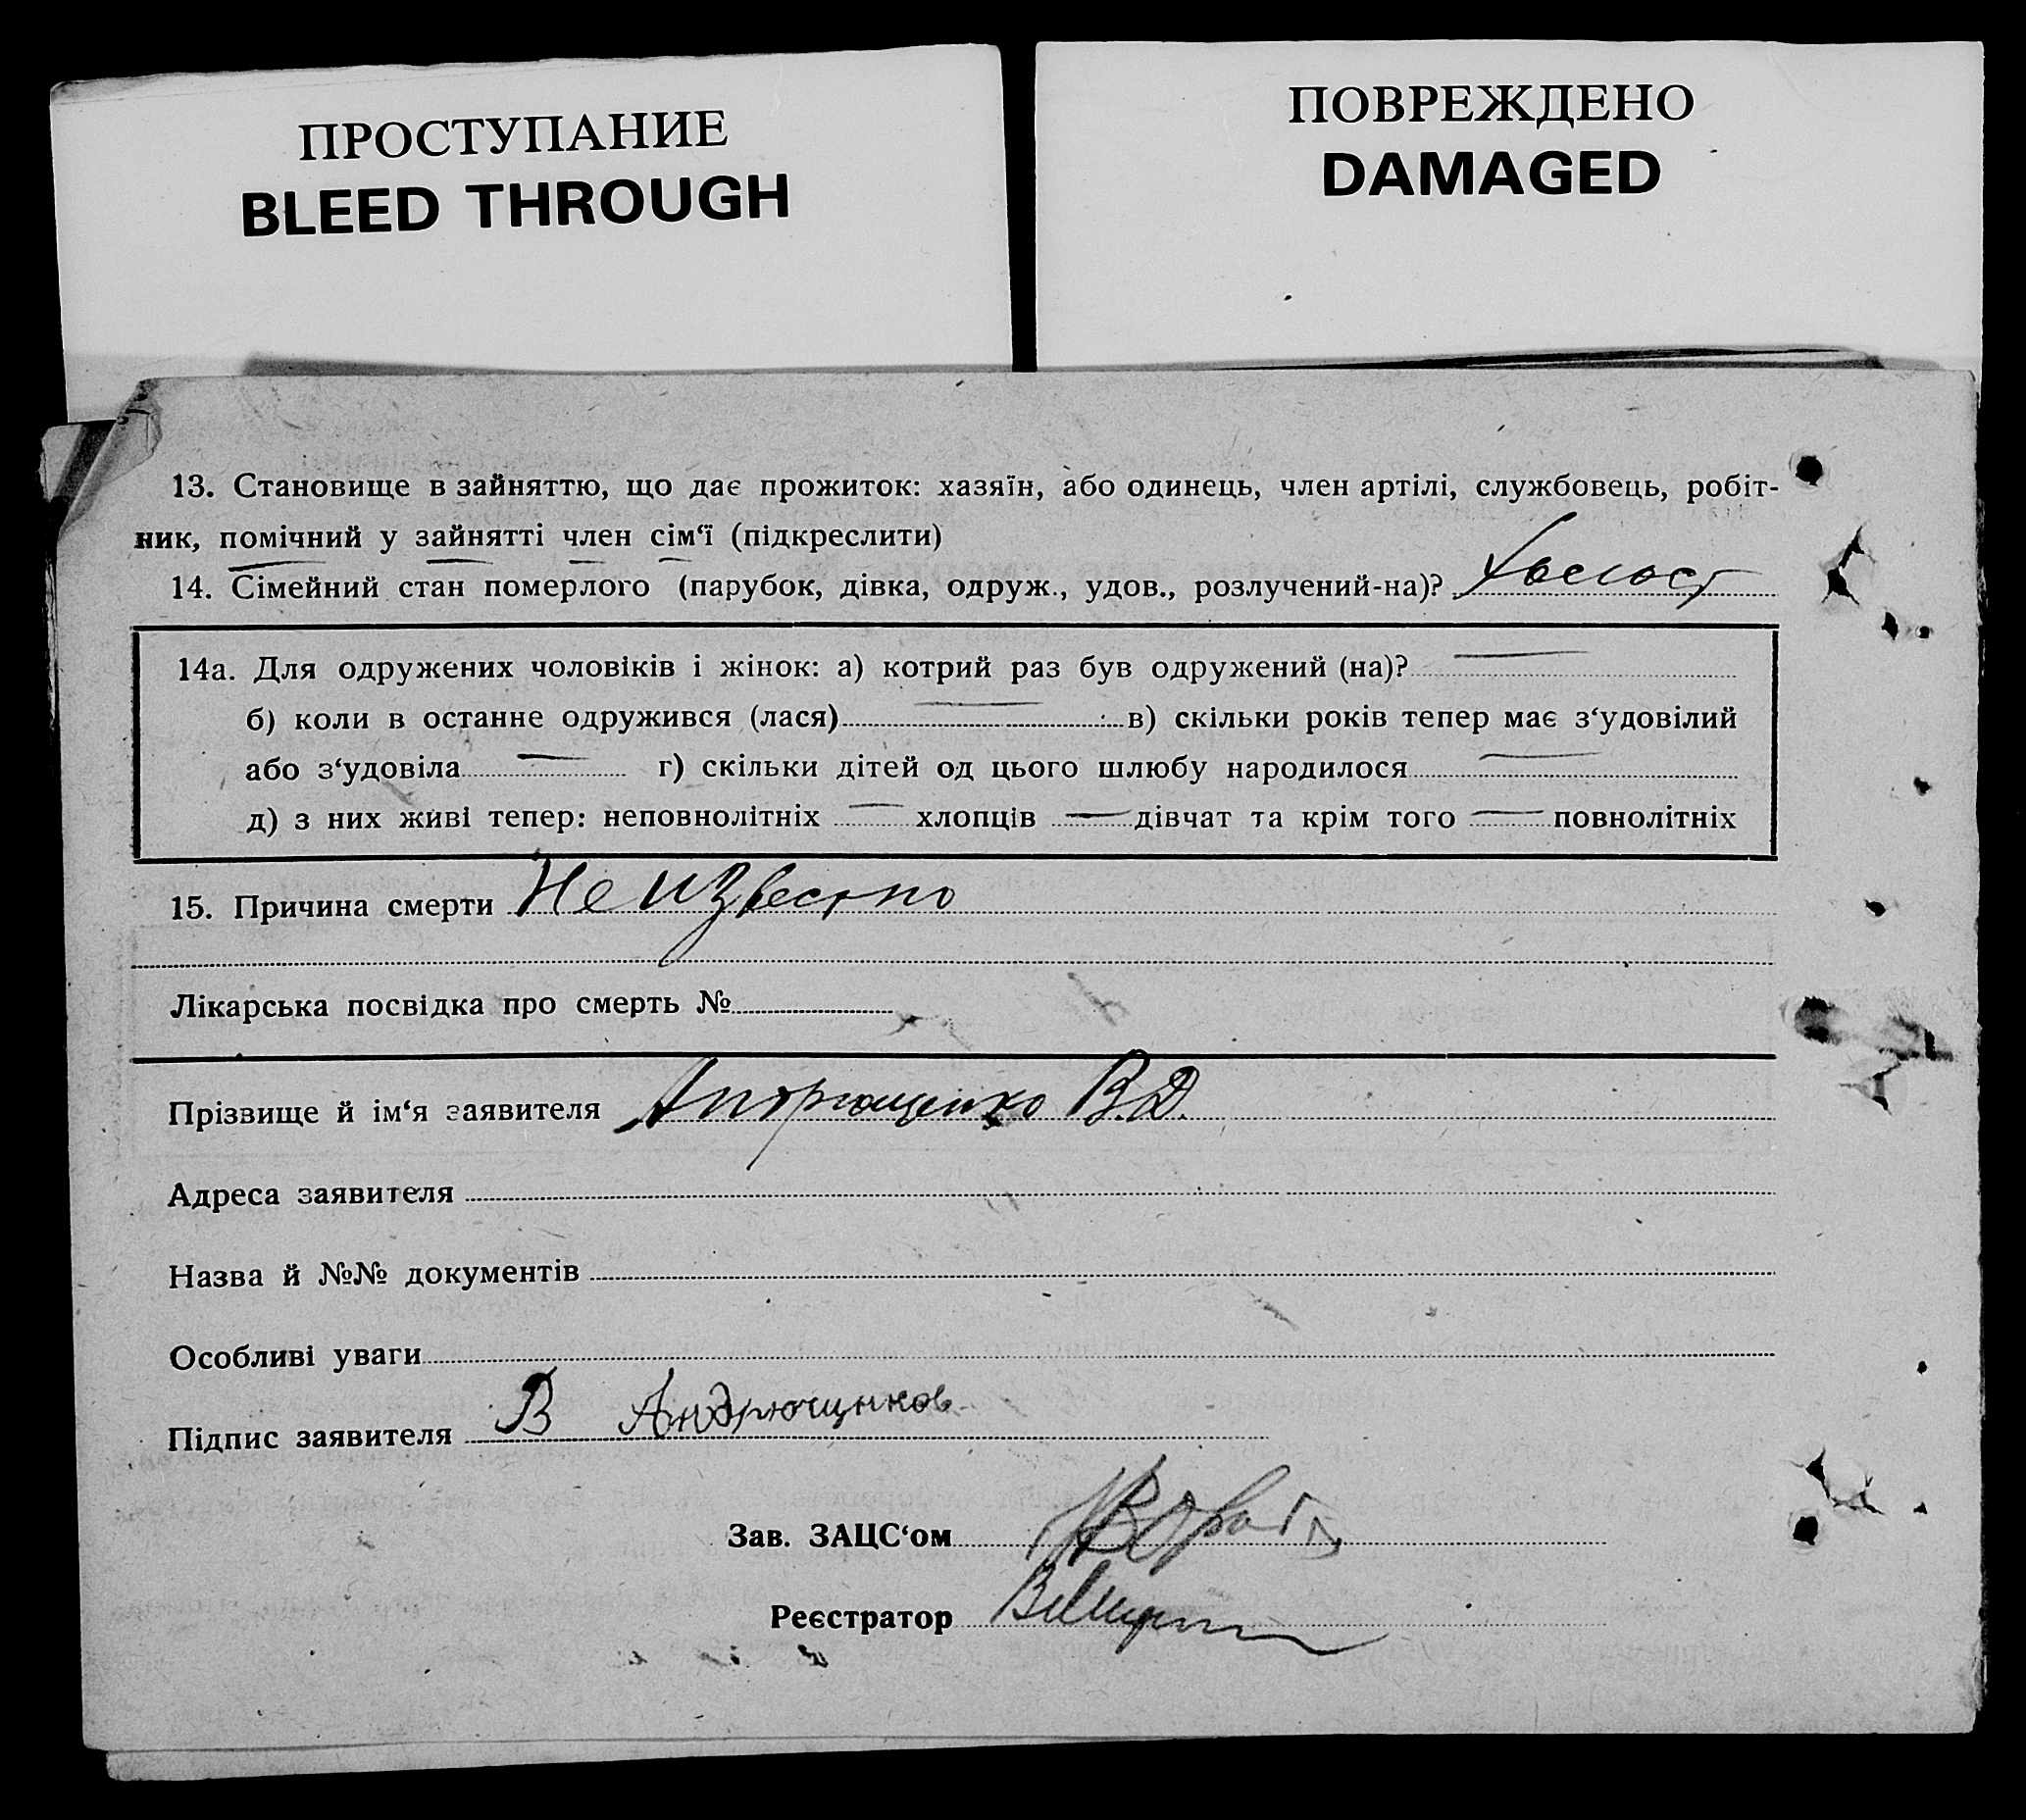 ПРОСТУПАНИЕ
BLEED THROUGH
ПОВРЕЖДЕНО
DAMAGED
13. Становище в зайняттю, що дає прожиток: хазяїн, або одинець, член артілі, службовець, робіт-
ник, помічний у зайнятті член сім‘ї (підкреслити)
14. Сімейний стан померлого (парубок, дівка, одруж., удов., розлучений-на)? Холост
14а. Для одружених чоловіків і жінок: а) котрий раз був одружений (на)? —
б) коли в останнє одружився (лася) — в) скільки років тепер має з‘удовілий
або з‘удовіла — г) скільки дітей од цього шлюбу народилося —
д) з них живі тепер: неповнолітніх — хлопців — дівчат та крім того — повнолітніх
15. Причина смерти Неизвестно
Лікарська посвідка про смерть №
Прізвище й ім‘я заявителя Андрющенко В.Д.
Адреса заявителя
Назва й №№ документів
Особливі уваги
Підпис заявителя В Андрющнков
Зав. ЗАЦС‘ом
Реєстратор